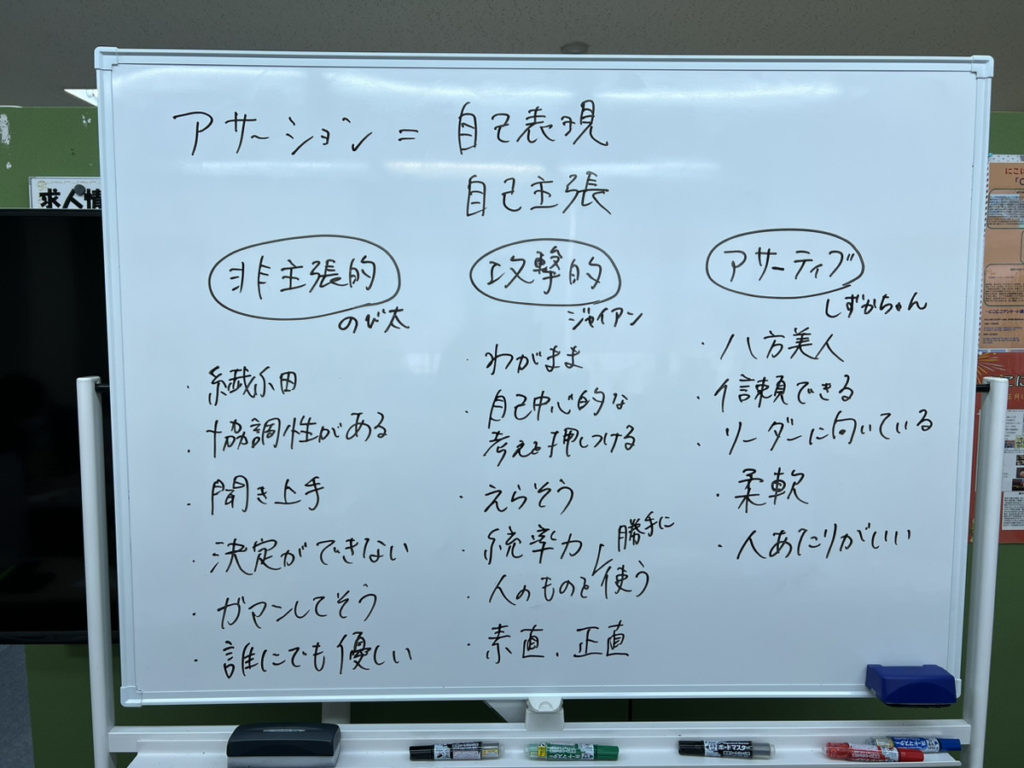 アサーション = 自己表現
自己主張
非主張的
のび太
・繊細
・協調性がある
・聞き上手
・決定ができない
・ガマンしてそう
・誰にでも優しい
攻撃的
ジャイアン
・わがまま
・自己中心的な
考えを押しつける
・えらそう
・統率力
勝手に
・人のものを使う
・素直、正直
アサーティブ
しずかちゃん
・八方美人
・信頼できる
・リーダーに向いている
・柔軟
・人あたりがいい
求人情
ボードマスター